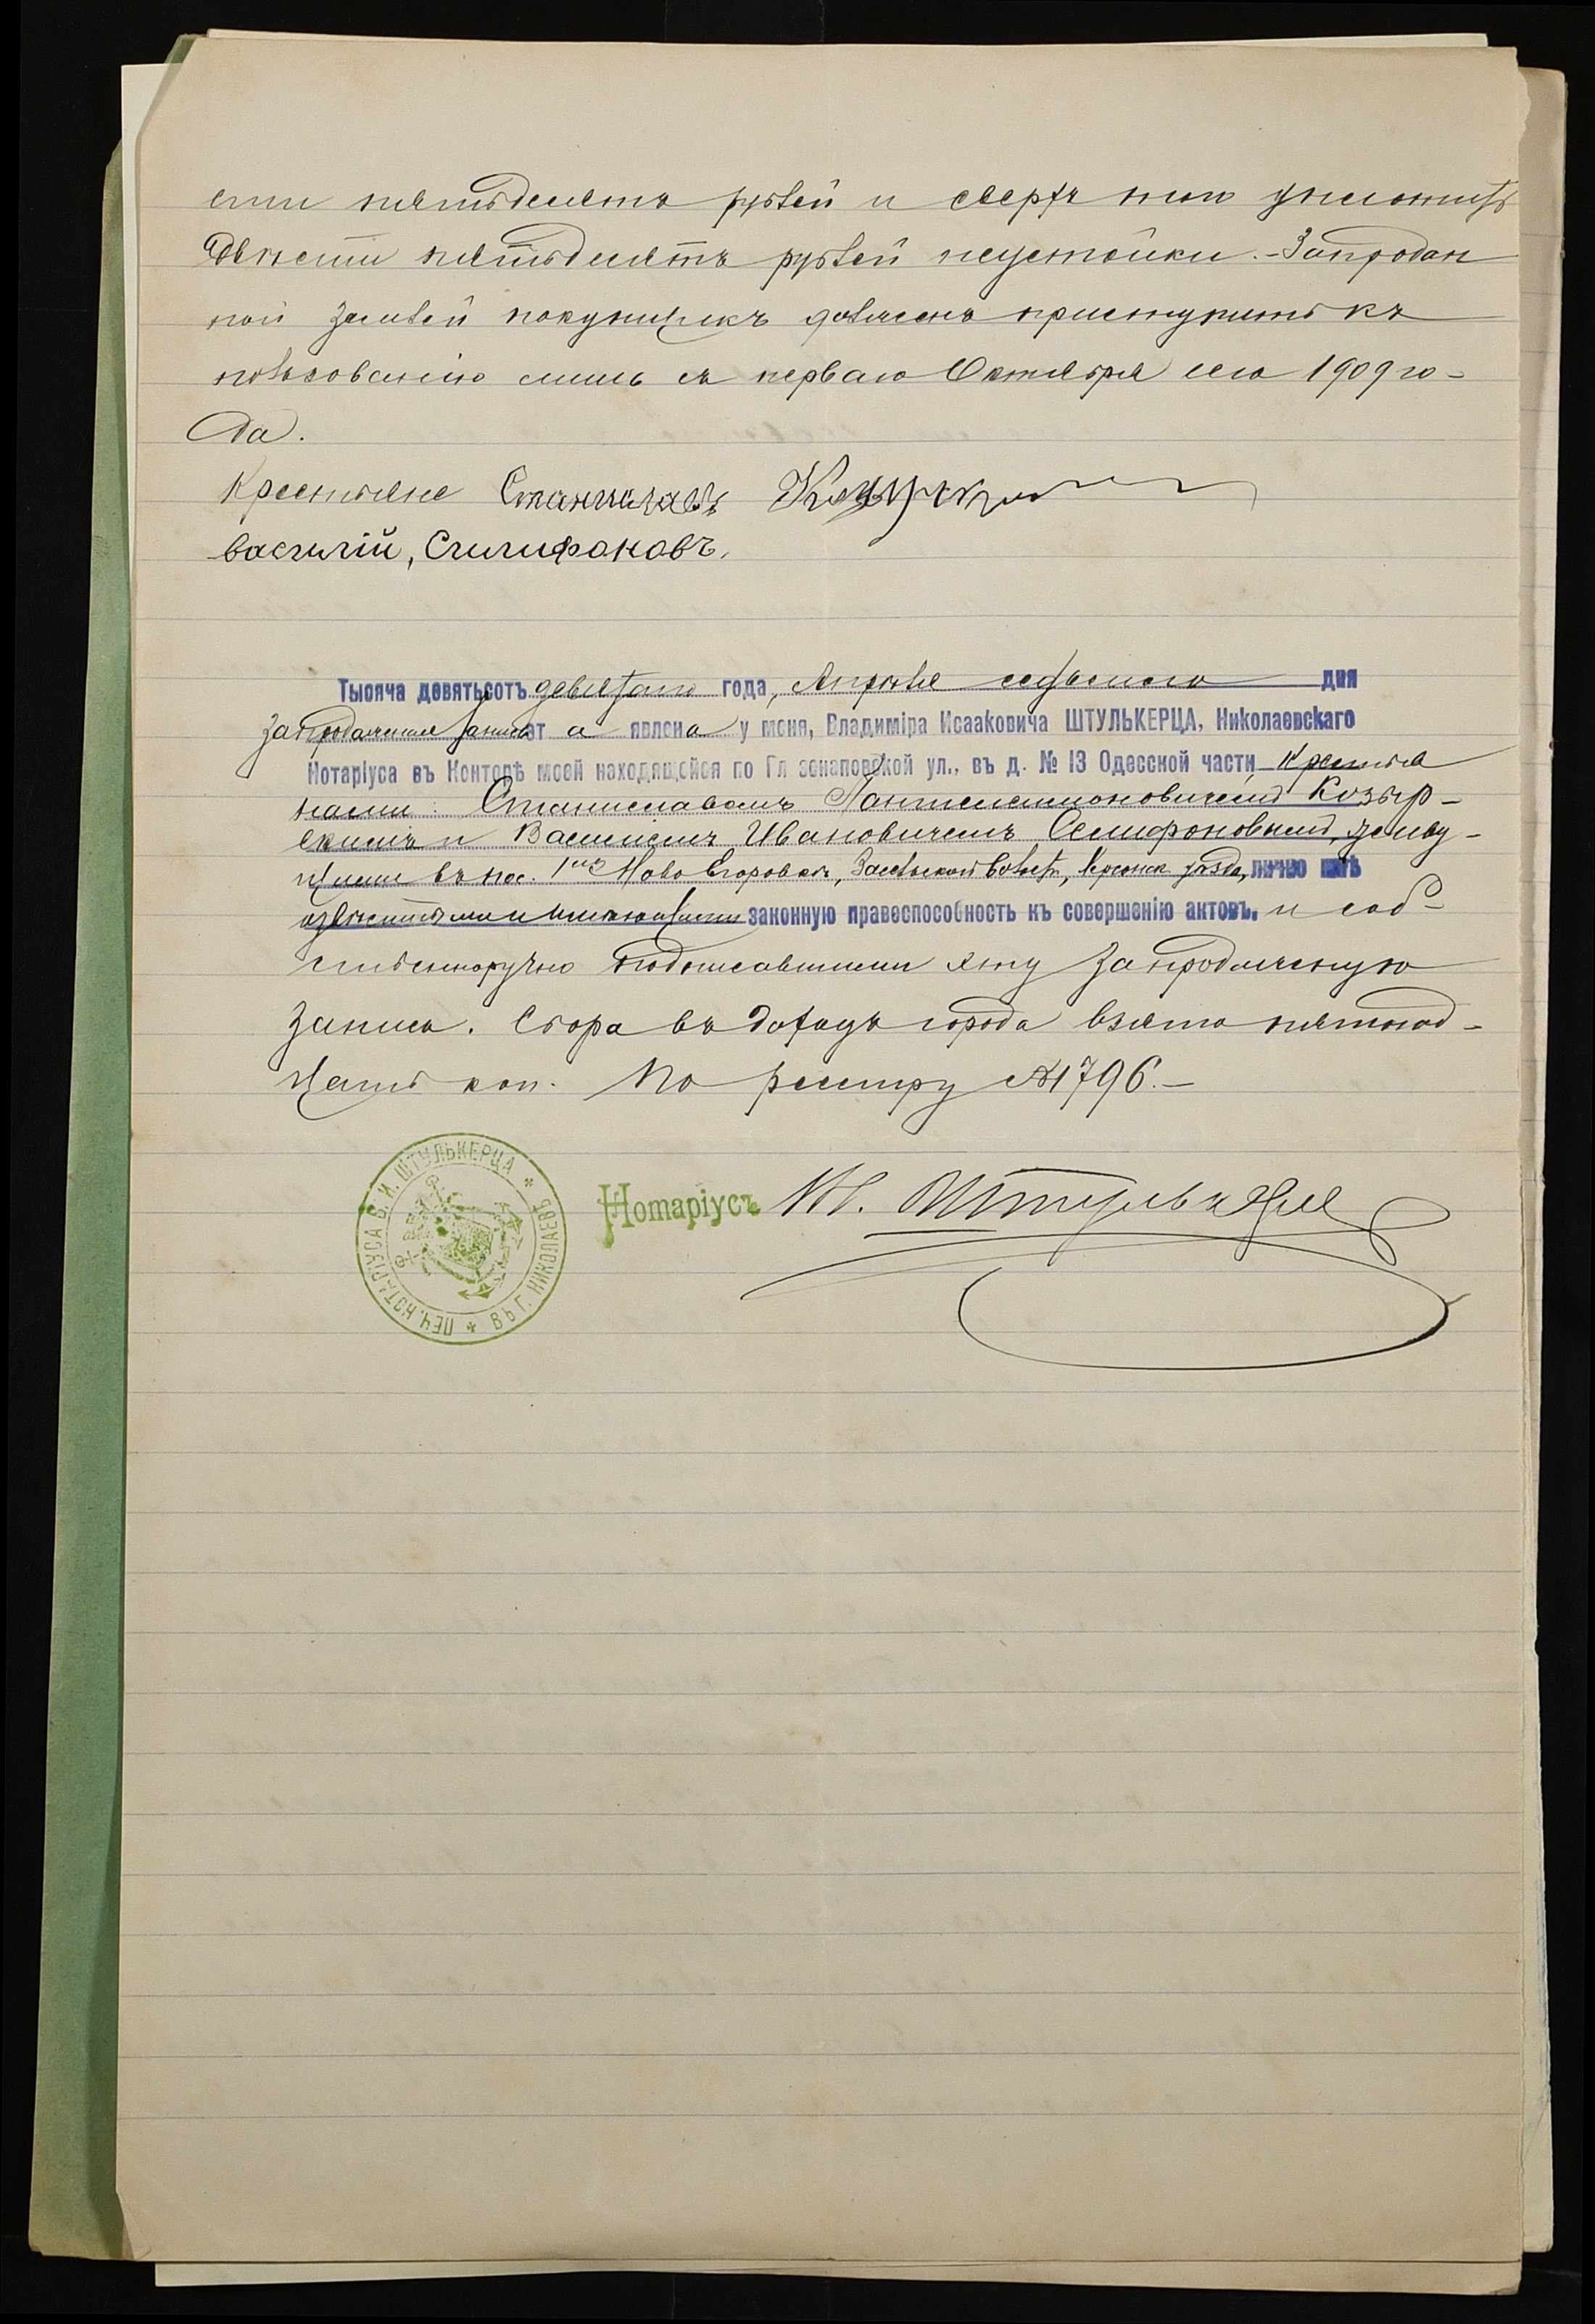 сти пятьдесятъ рублей и сверхъ того уплотить
двѣсти пятьдесятъ рублей неустойки. - Запродан
ной землей покупщикъ долженъ приступить къ
пользованію лишь съ перваго Октября сего 1909 го-
да.
Крестьяне Станиславъ
Василій, Силифоновъ,
Тысяча девятьсотъ девятаго года, Апрѣля седьмого дня
Запродажная запись эт а явлена у меня, Владиміра Исааковича ШТУЛЬКЕРЦА, Николаевскаго
Нотаріуса въ Конторѣ моей находящейся по Глазенаповской ул., въ д. № 13 Одесской части Крестья
нами: Станиславомъ Пантелеимоновичемъ Козыр-
скимъ и Василіемъ Ивановичемъ Селифоновымъ, живу-
щими въ пос. 1мъ Ново Егоровкѣ, Засельской волости, Херсонск. уѣзда, лично мнѣ
извѣстными и имѣющими законную правоспособность къ совершенію актовъ, и соб-
ственноручно подписавшими эту запродажную
запись. Сбора въ доходъ города взято пятнад-
цать коп. По реестру №1796.-
ПЕЧ. НОТАРІУСА В. И. ШТУЛЬКЕРЦА * ВЪ Г. НИКОЛАЕВѢ *
Нотаріусъ Вл. Штулькерцъ